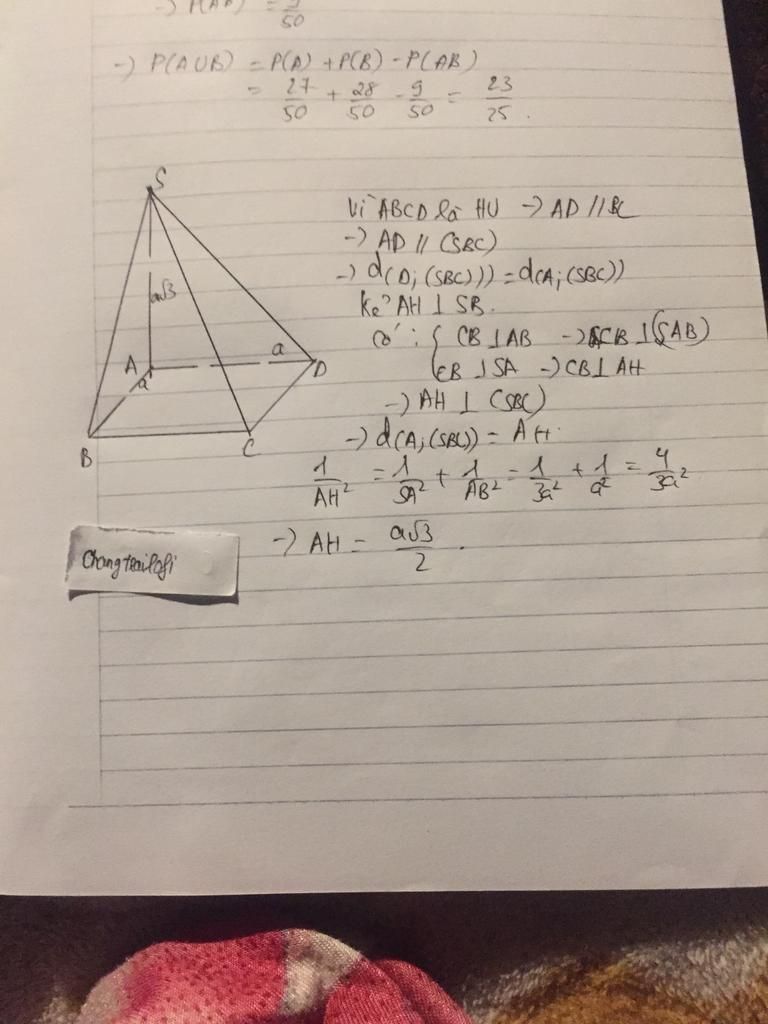 -) P(AB) = 9/50
-) P(AUB) = P(A) + P(B) - P(AB)
= 27/50 + 28/50 - 9/50 = 23/25.
S
a√3
A
a
a
D
B
C
Vì ABCD là HV -) AD // BC
-) AD // (SBC)
-) d(D; (SBC))) = d(A; (SBC))
kẻ AH ⊥ SB.
có : { CB ⊥ AB -) CB ⊥ (SAB)
CB ⊥ SA -) CB ⊥ AH
-) AH ⊥ (SBC)
-) d(A; (SBC)) = AH.
1/AH² = 1/SA² + 1/AB² = 1/3a² + 1/a² = 4/3a²
-) AH = a√3/2.